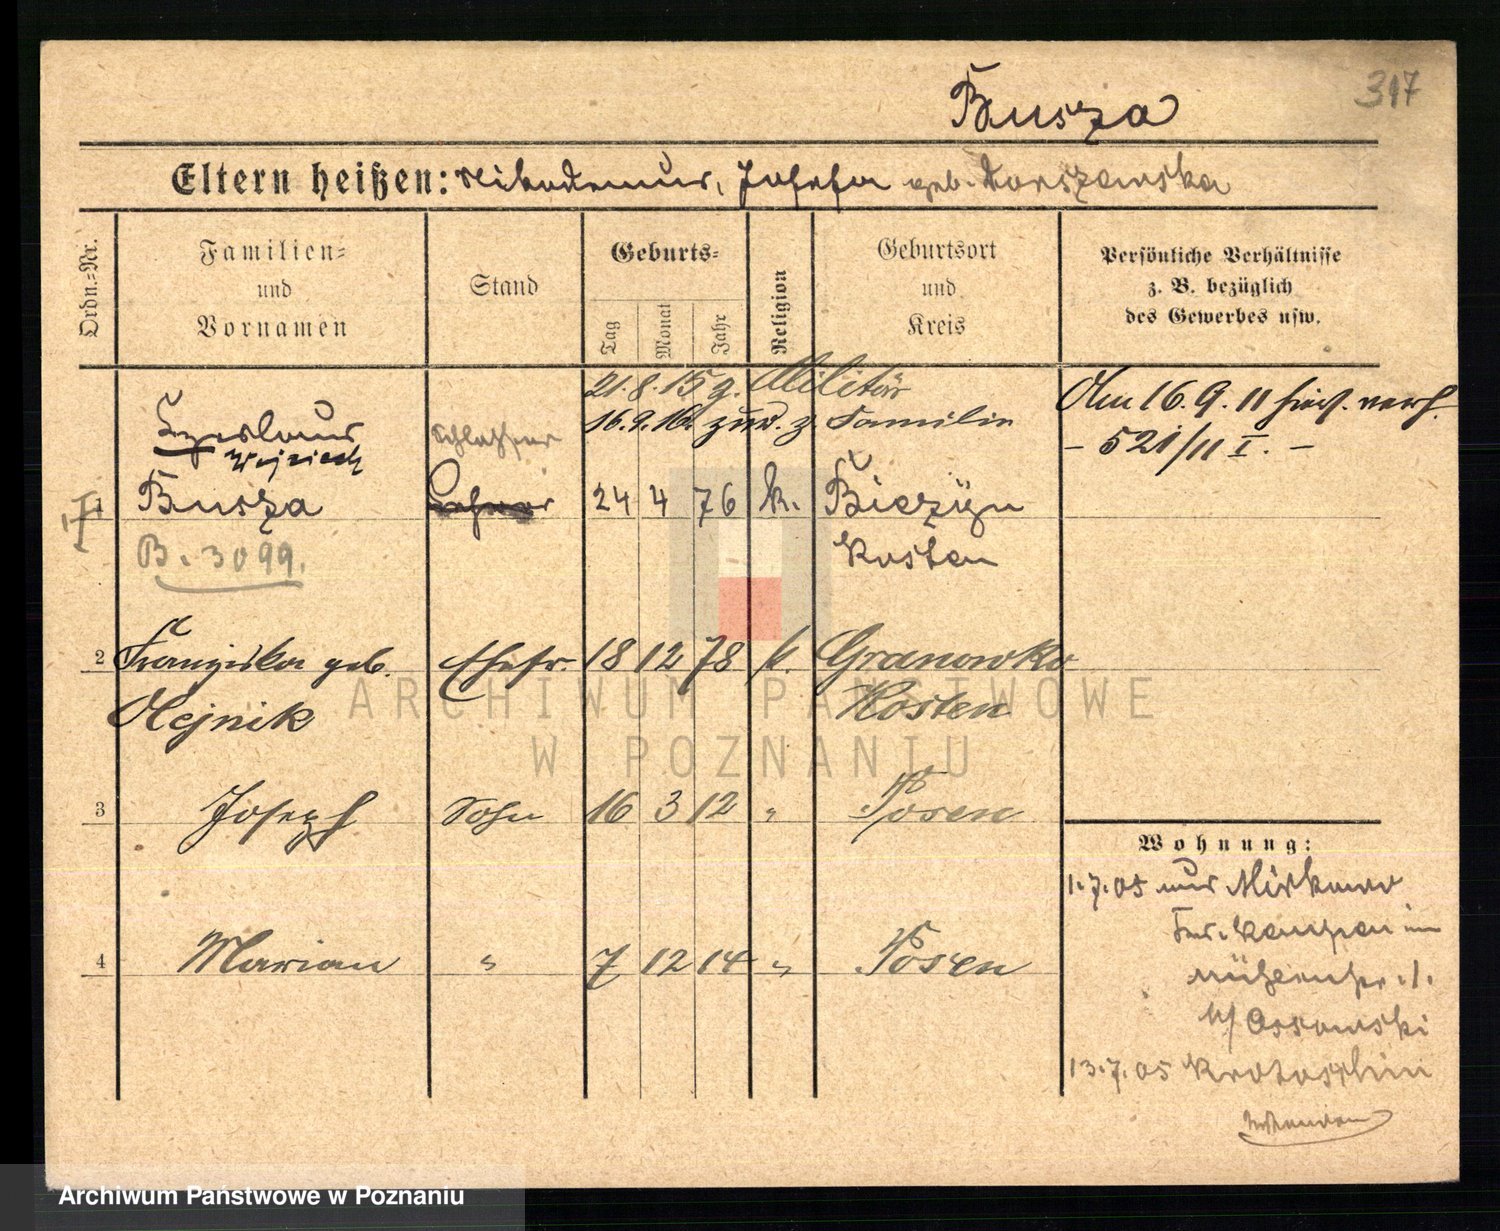 317
Busza
Eltern heißen: Nikodemus, Josefa geb.
Ordn.-Nr.
Familien-
und
Vornamen
Stand
Geburts-
Tag
Monat
Jahr
Religion
Geburtsort
und
Kreis
Persönliche Verhältnisse
z. B. bezüglich
des Gewerbes usw.
21.8.15 g. Militär
16.9.16 zur. z. Familie
Am 16.9.11 hies. verh.
- 521/11 I. -
1 Busza 24 4 76 k. Biezyn
B. 3099. Kosten
2 Franziska geb. Ehefr. 18 12 78 k. Granowko
Olejnik Kosten
3 Joseph Sohn 16 3 12 " Posen
4 Marian " 7 12 14 " Posen
Wohnung:
1.7.05 aus
Ossowski
13.7.05 Krotoschin
ARCHIWUM PAŃSTWOWE
W POZNANIU
Archiwum Państwowe w Poznaniu